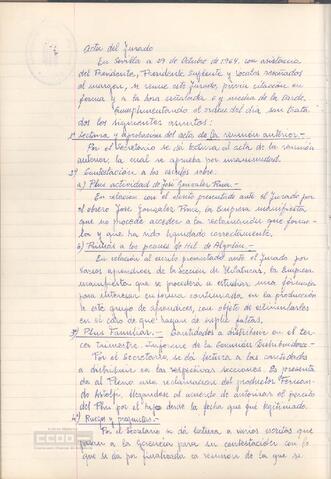 Acta del Jurado
En Sevilla a 29 de Octubre de 1964, con asistencia
del Presidente, Presidente Suplente y Vocales reseñados
al margen, se reune este Jurado, previa citación en
forma y a la hora señalada 6 y media de la tarde.
Cumplimentando el orden del día, son trata-
dos los siguientes asuntos:
1º Lectura y aprobación del acta de la reunión anterior.-
Por el Secretario se dá lectura al acta de la reunión
anterior, la cual se aprueba por unanimidad.
2º Contestación a los escritos sobre:
a) Plus actividad de José González
En relación con el escrito presentado ante el Jurado por
el obrero José González, la Empresa manifiesta
que no procede acceder a la reclamación que formu-
la y que ha sido liquidado correctamente.
b) Primas a los peones de Hil. de Algodón.-
En relación al escrito presentado ante el Jurado por
varios aprendices de la Sección de Hilaturas, la Empresa
manifiesta que se procederá a estudiar una fórmula
para interesar en forma continuada, en la producción
a este grupo de aprendices, con objeto de estimularles
en el caso de que hagan de suplir faltas.
3º Plus Familiar.- Cantidades a distribuir en el ter-
cer trimestre. Informe de la Comisión Distribuidora.-
Por el Secretario, se dá lectura a las cantidades
a distribuir en las respectivas secciones. Es presenta-
da al Pleno una reclamación del productor Fernan-
do, llegándose al acuerdo de autorizar el percibo
del Plus por el hijo desde la fecha que fué
4º Ruegos y preguntas.-
Por el Secretario se dá lectura a varios escritos que
pasan a la Gerencia para su contestación con lo
que se da por finalizada la reunión de la que se
CCOO